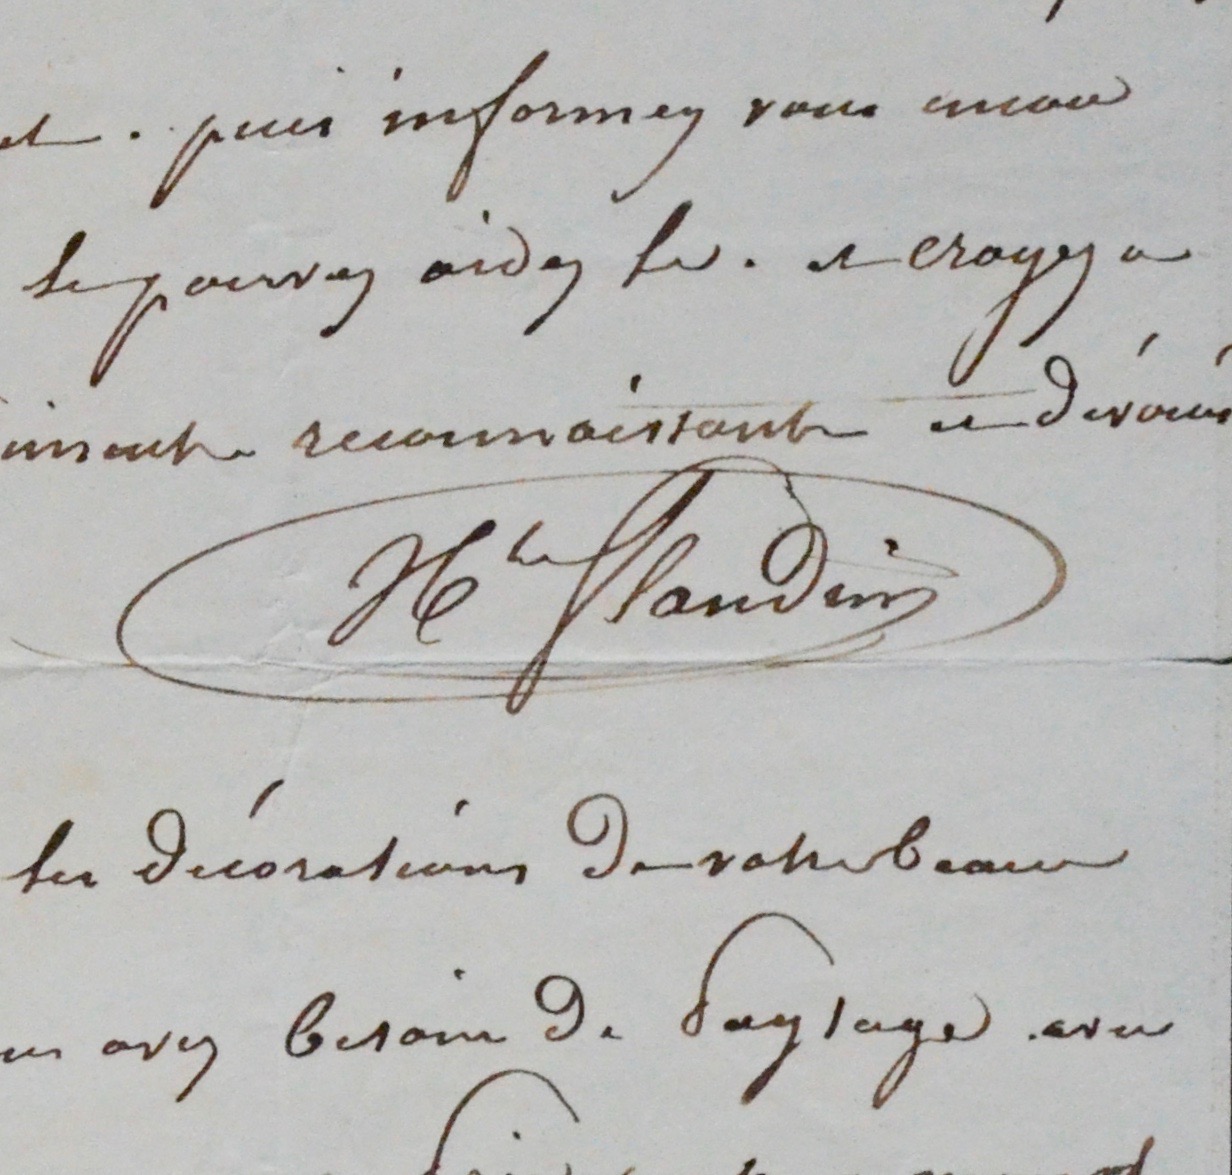 puis informez vous encore
le pouvez aidez le. et croyez a
reconnaissante et dévoué
H<sup>te</sup> Flandrin
les décorations de votre beau
avez besoin de Paysage avec